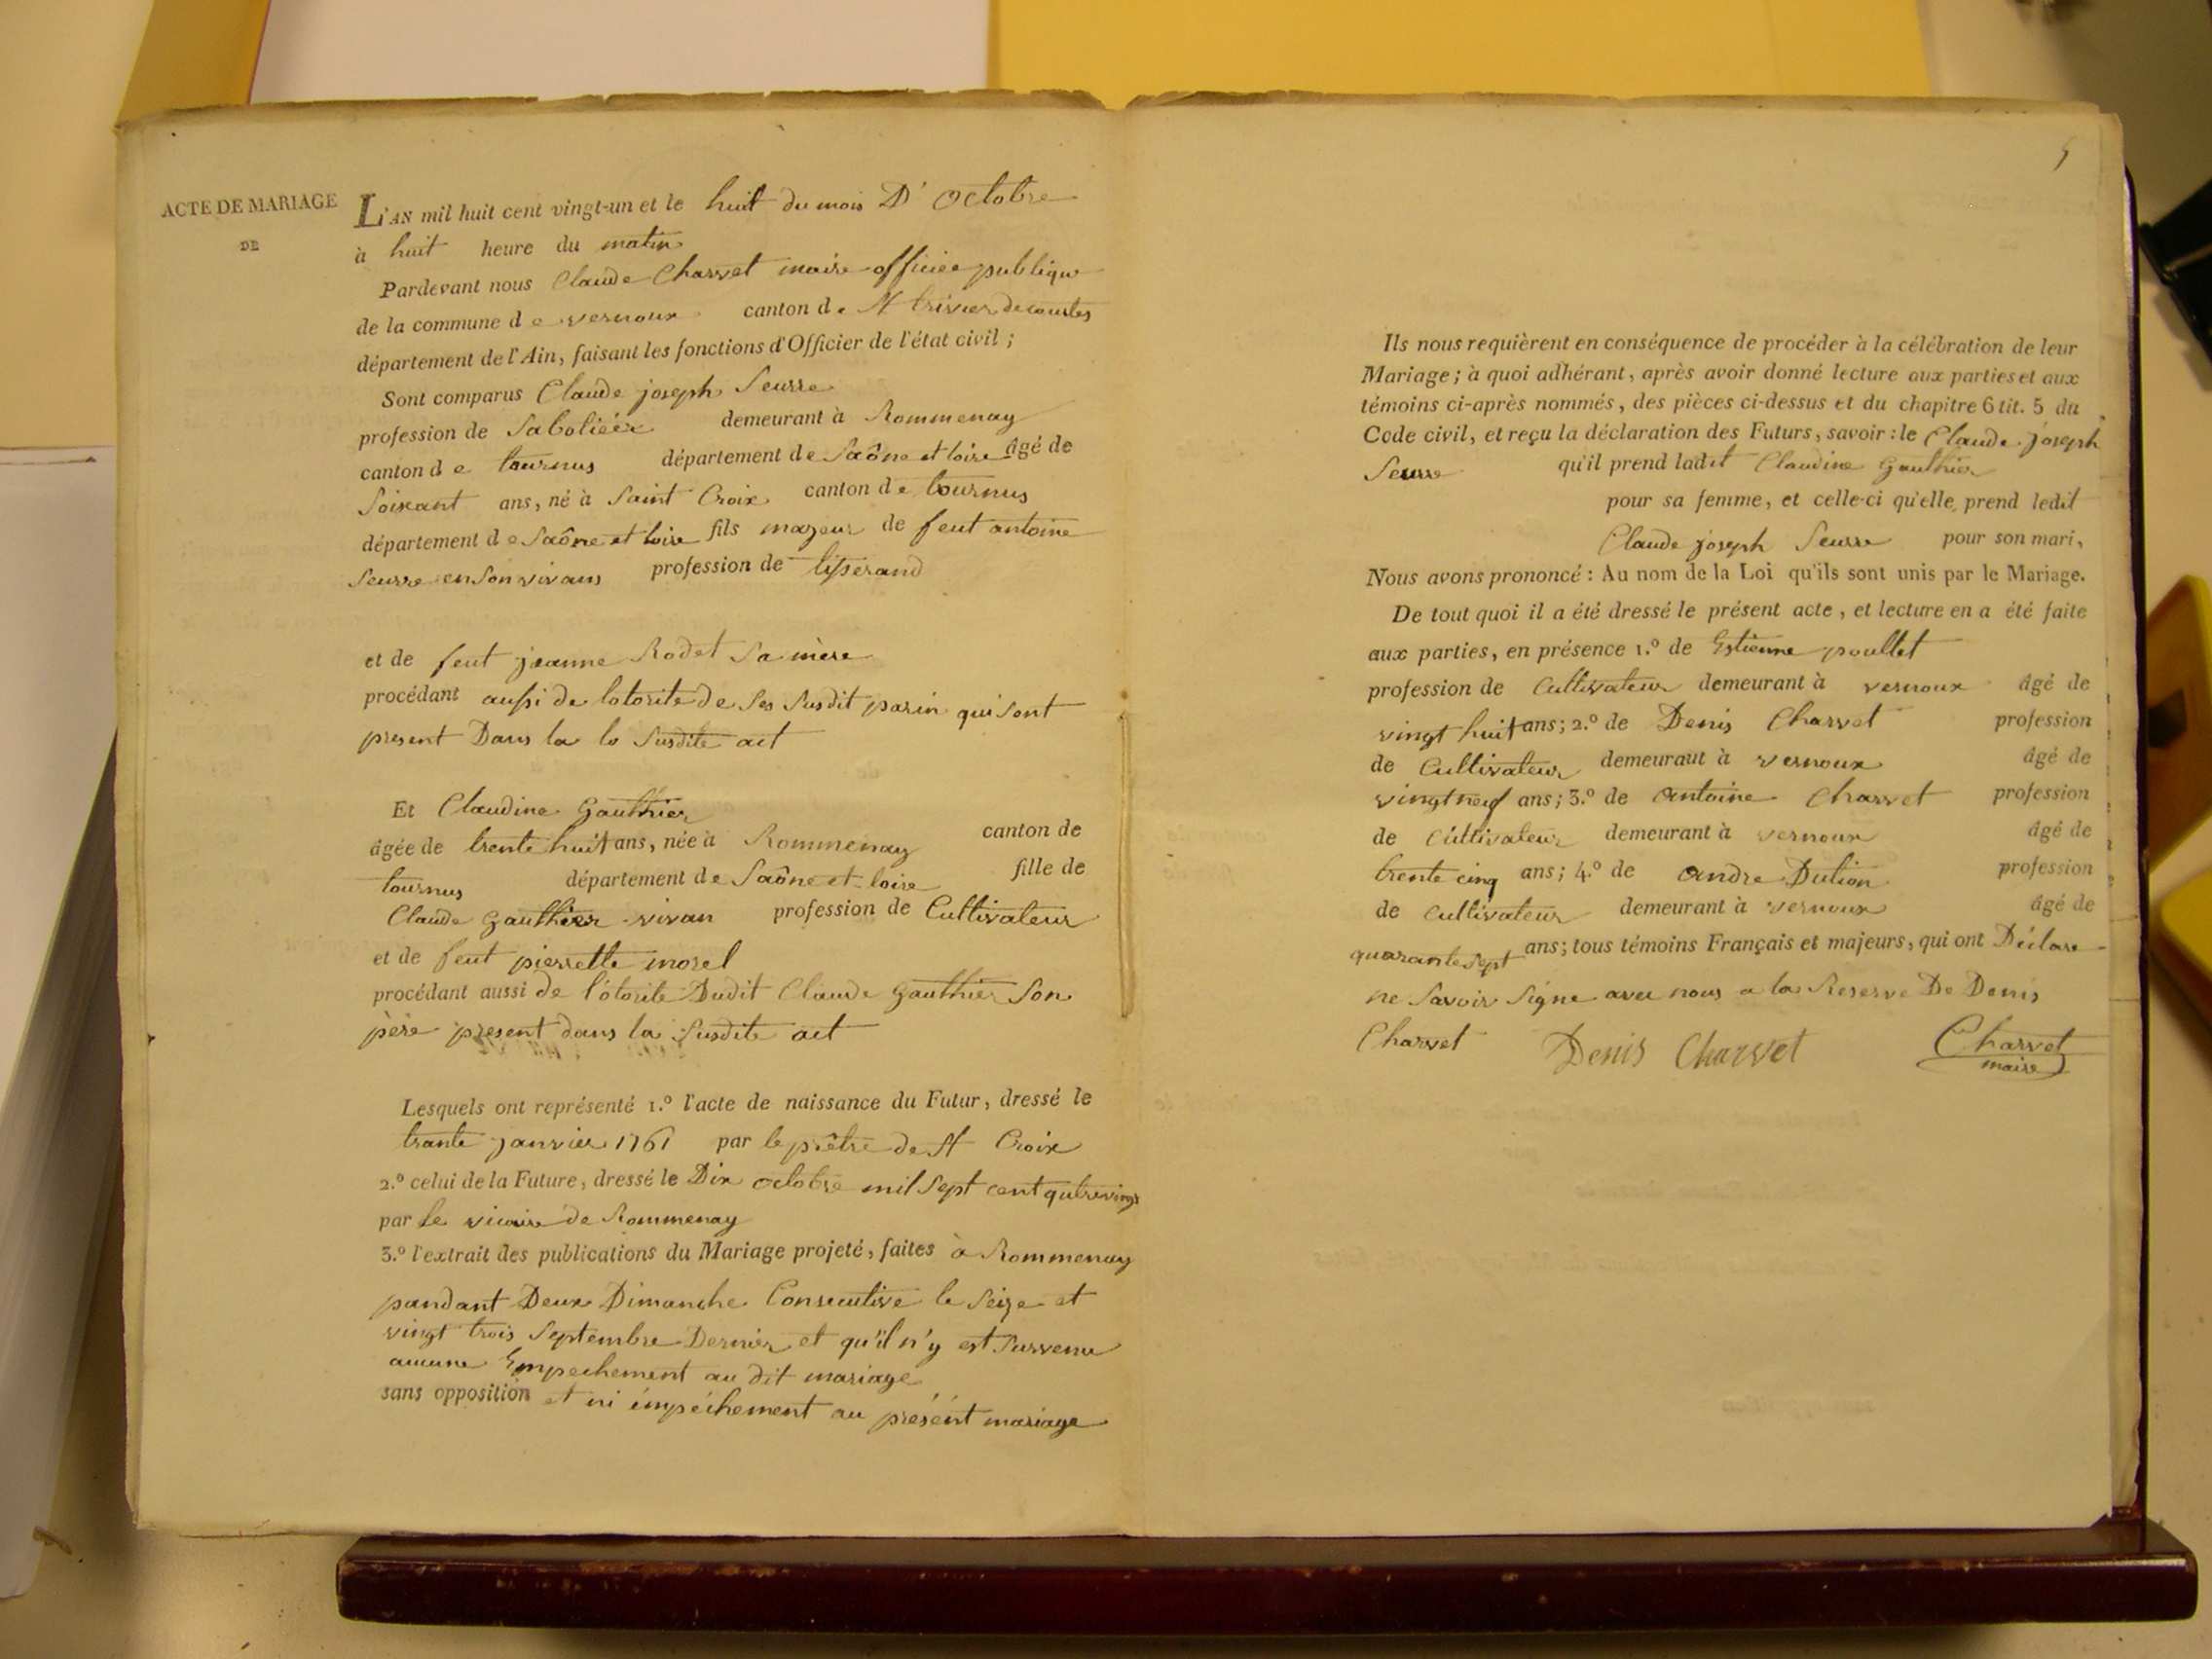 ACTE DE MARIAGE
DE
L'AN mil huit cent vingt-un et le huit du mois D'Octobre
à huit heure du matin
Pardevant nous Claude Charvet maire officiee publique
de la commune de vernoux canton de St trivier de courtes
département de l'Ain, faisant les fonctions d'Officier de l'état civil ;
Sont comparus Claude joseph Seurre
profession de Sabolieer demeurant à Rommenay
canton de tournus département de Saône et loire âgé de
Soixant ans, né à Saint Croix canton de tournus
département de Saône et loire fils mageur de feut antoine
Seurre en Son vivans profession de tisserand
et de feut jeanne Rodet Sa mère
procédant aussi de lotorite de Ses Susdit parin qui Sont
present Dans la lo Susdite act
Et Claudine Gauthier
âgée de trente huit ans, née à Rommenay canton de
tournus département de Saône et loire fille de
Claude Gauthier vivan profession de Cultivateur
et de feut pierrette morel
procédant aussi de l'otorite Dudit Claude Gauthier Son
père present dans la Susdite act
Lesquels ont représenté 1.º l'acte de naissance du Futur, dressé le
trante janvier 1761 par le prêtre de St Croix
2.º celui de la Future, dressé le Dix octobre mil Sept cent qutrevingt
par le vicaire de Rommenay
3.º l'extrait des publications du Mariage projeté, faites à Rommenay
pandant Deux Dimanche Consecutive le Seize et
vingt trois Septembre Dernier et qu'il n'y est Survenu
aucune Empechement au dit mariage
sans opposition et ni émpéchement au présént mariage
5
Ils nous requièrent en conséquence de procéder à la célébration de leur
Mariage ; à quoi adhérant, après avoir donné lecture aux parties et aux
témoins ci-après nommés, des pièces ci-dessus et du chapitre 6 tit. 5 du
Code civil, et reçu la déclaration des Futurs, savoir : le Claude joseph
Seurre qu'il prend ladit Claudine Gauthier
pour sa femme, et celle-ci qu'elle prend ledit
Claude joseph Seurre pour son mari,
Nous avons prononcé : Au nom de la Loi qu'ils sont unis par le Mariage.
De tout quoi il a été dressé le présent acte, et lecture en a été faite
aux parties, en présence 1.º de Estienne poullet
profession de Cultivateur demeurant à vernoux âgé de
vingt huit ans ; 2.º de Denis Charvet profession
de Cultivateur demeurant à vernoux âgé de
vingt neuf ans ; 3.º de Antoine Charvet profession
de Cultivateur demeurant à vernoux âgé de
trente cinq ans ; 4.º de Andre Dution profession
de Cultivateur demeurant à vernoux âgé de
quarante Sept ans ; tous témoins Français et majeurs, qui ont Déclare
ne Savoir Signe avec nous a la Reserve De Denis
Charvet Denis Charvet Charvet
maire